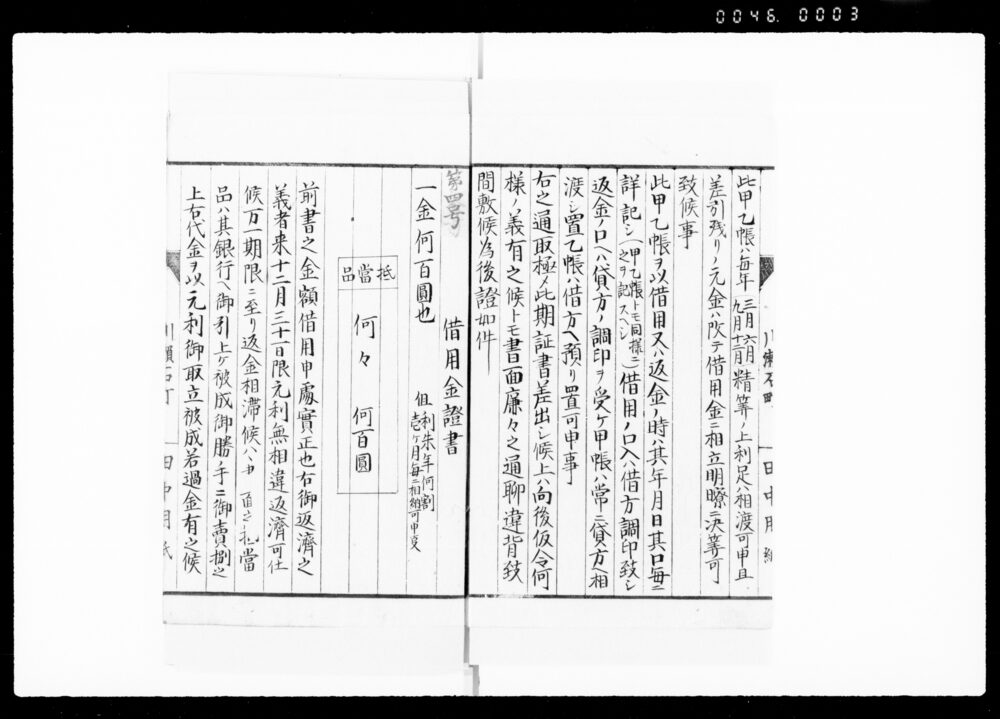 0046. 0003
此甲乙帳ハ毎年三月六月九月十二月精筭ノ上利足ハ相渡可申且
差引残リノ元金ハ改テ借用金ニ相立明瞭ニ决筭可
致候事
此甲乙帳ヲ以借用又ハ返金ノ時ハ其年月日其口毎ニ
詳記シ(甲乙帳トモ同様ニ之ヲ記スヘシ)借用ノ口入ハ借方調印致シ
返金ノ口ヘハ貸方ノ調印ヲ受ケ甲帳ハ常ニ貸方ヘ相
渡シ置乙帳ハ借方ヘ預リ置可申事
右之通取極メ此期証書差出シ候上ハ向後仮令何
様ノ義有之候トモ書面廉々之通聊違背致
間敷候為後證如件
第四号
借用金證書
一金何百圓也
但利朱年何割壱ヶ月毎ニ相納可申事
抵當品
何々 何百圓
前書之金額借用申處實正也右御返濟之
義者来十二月三十一日限元利無相違返濟可仕
候万一期限ニ至リ返金相滞候ハヽ 當
品ハ其銀行ヘ御引上ケ被成御勝手ニ御賣捌之
上右代金ヲ以元利御取立被成若過金有之候
田中用紙